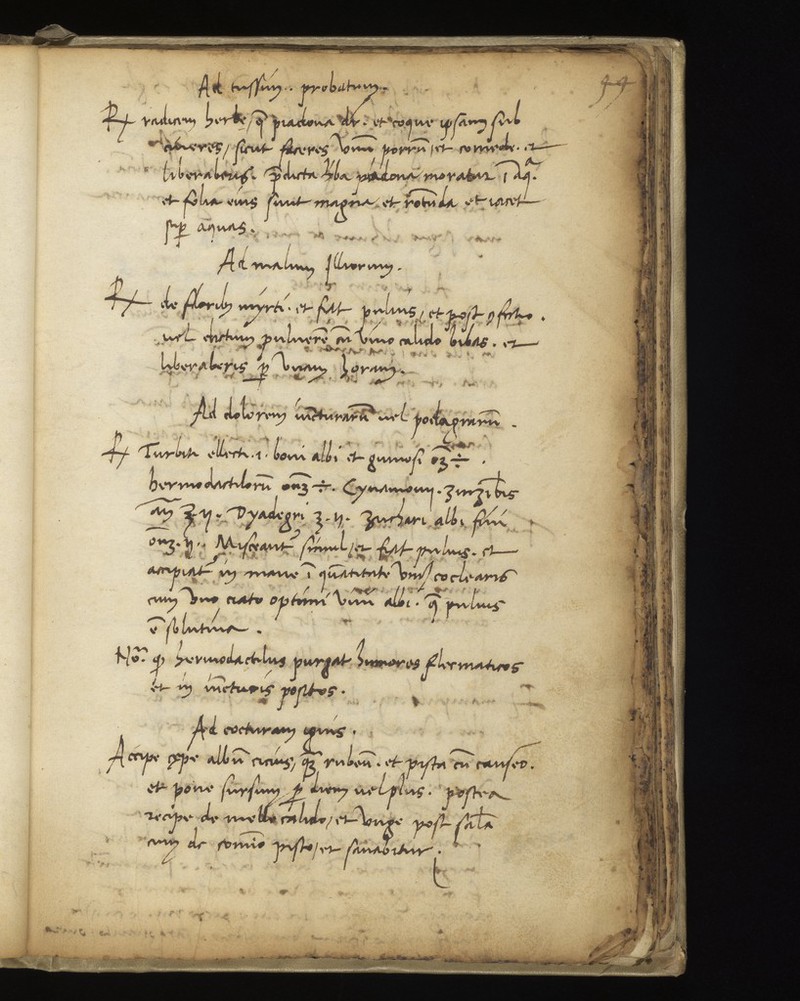 99
Ad tussim . probatum .
Rx radicem herbe, q̄ piadona dr̄ . et coque ipsam sub
cineres, sicut faceres vnū porrū, et comede . et
liberaberis . p̄dicta hba piadona moratur ī aq̄ .
et folia eius sunt magna, et rotūda et iacet
sup̄ aquas .
Ad malum Illiorum .
Rx de floribꝰ myrti . et fiat puluis, et post
vel dictum puluerē cū vino calido bibas . et
liberaberis p̱ vnam horam .
Ad dolorem iūcturarū vel podagrarū .
Rx Turbiti ellecti .i. boni albi et gumosi onʒ ÷ .
hermodactilorū onʒ ÷ . Cynamomi . zinziberis
an̄ ʒ .ij. Dyadegri ʒ .ij. zuchari albi fini
onʒ .ij. Misceant᷑ simul, et fiat puluis . et
accipiat᷑ in mane ī quātitate vniꝰ coclearis
cum vno ciato optimi vini albi . q̄ puluis
ē solutiua .
Noᵃ. ꝙ hermodactilus purgat humores flecmaticos
et in iūcturis positos .
Ad cocturam ignis .
Accipe cepe albū cicius, q̄ rubeū . et pista cū caseo .
et pone sursum p̱ diem vel plus . postea
recipe de melle calido, et vnge post
cum de pisto, et sanabitur .